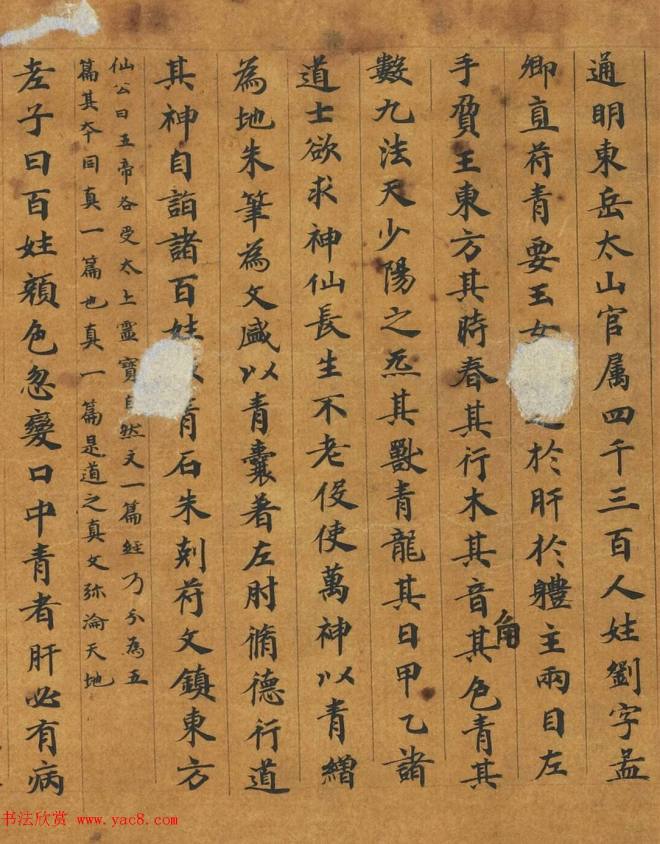 通明東岳太山官属四千三百人姓劉字孟
卿直符青要玉女於肝於軆主兩目左
手貿王東方其時春其行木其音角其色青其
數九法天少陽之炁其獸青龍其日甲乙諸
道士欲求神仙長生不老役使萬神以青繒
為地朱筆為文盛以青囊著左肘脩德行道
其神自詣諸百姓青石朱刻符文鎮東方
仙公曰五帝各受太上靈寶自然文一篇經乃分為五
篇其夲同真一篇也真一篇是道之真文弥淪天地
老子曰百姓顔色忽變口中青者肝必有病
书法欣赏 www.yac8.com